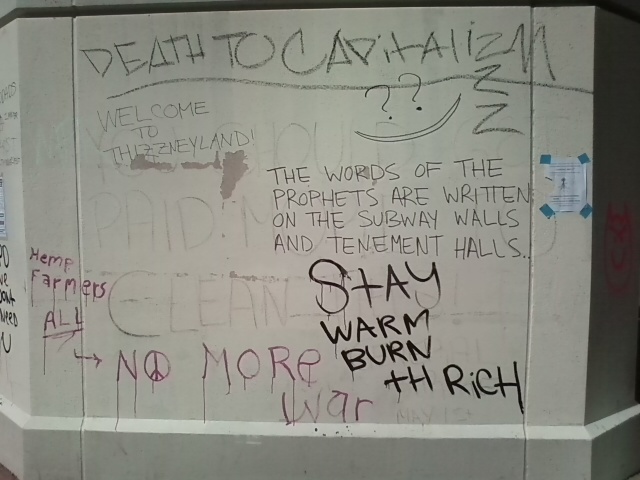 DEATH TO CAPitAliZM
ZZ
??
WELCOME
TO
THIZZNEYLAND!
THE WORDS OF THE
PROPHETS ARE WRITTEN
ON THE SUBWAY WALLS
AND TENEMENT HALLS..
PAID
CLEAN
Hemp
Farmers
ALL
NO MORe
War
StAY
WARM
BURN
tH RiCH
MAY 1st